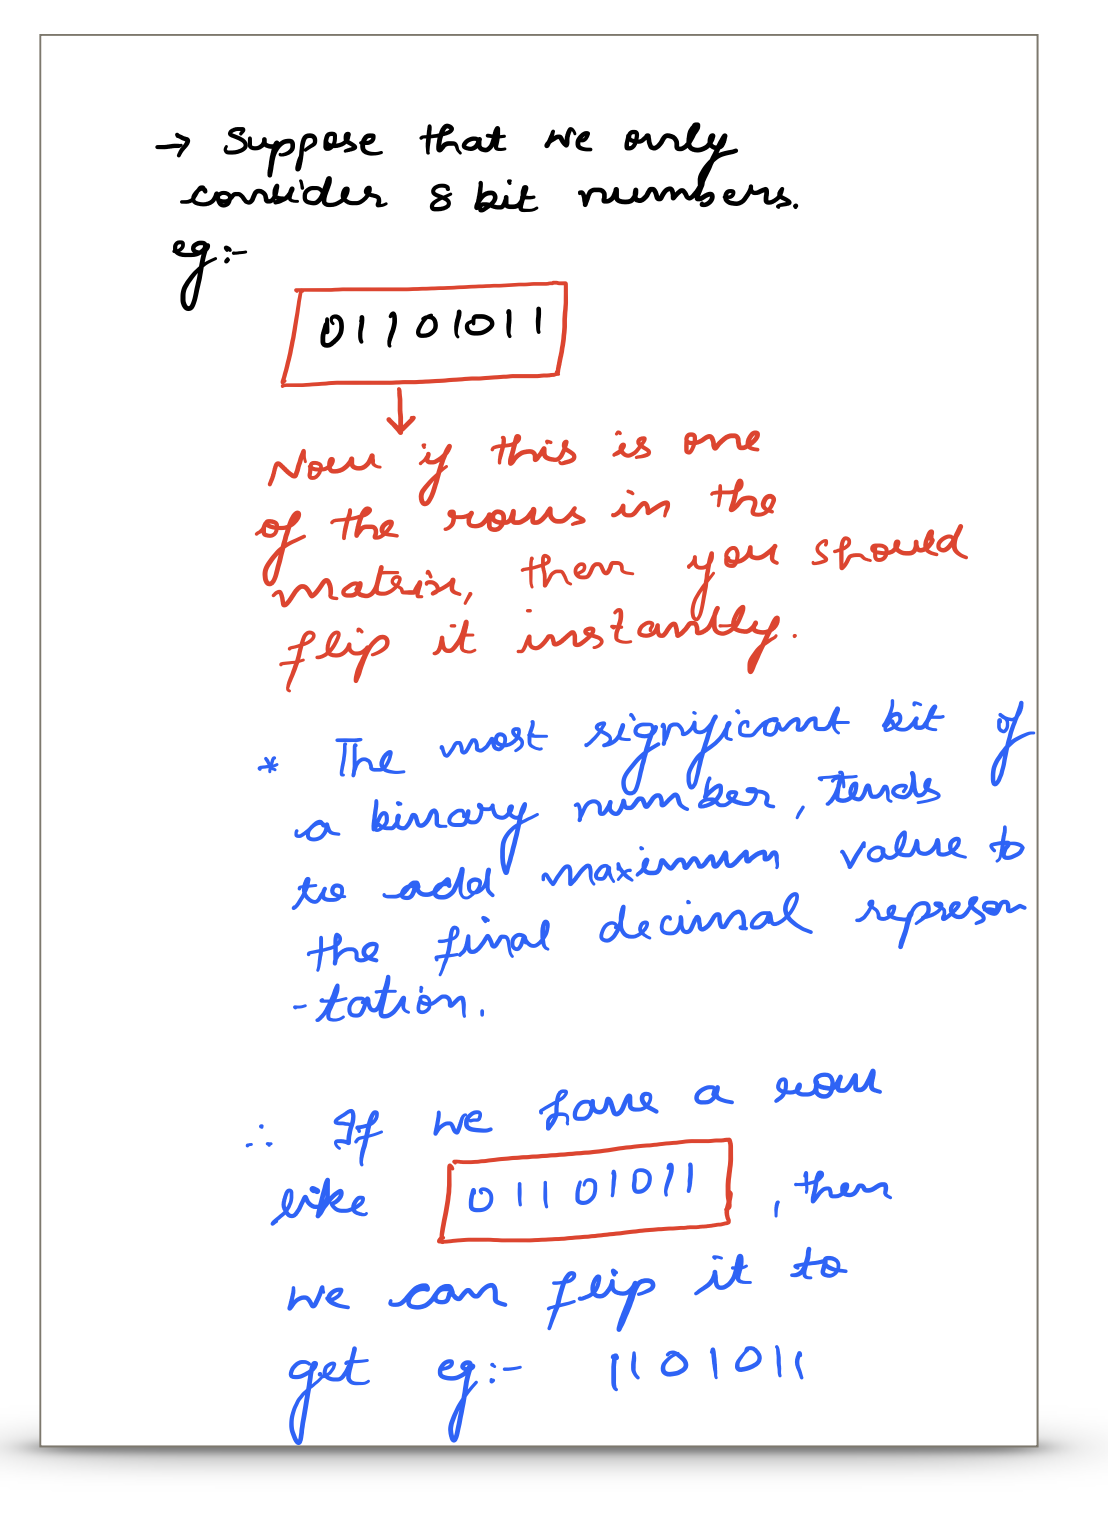 → Suppose that we only
consider 8 bit numbers.
eg:-
01101011
Now if this is one
of the rows in the
matrix, then you should
flip it instantly.
* The most significant bit of
a binary number, tends
to add maximum value to
the final decimal represen
-tation.
∴ If we have a row
like 01101011, then
we can flip it to
get eg:- 1101011